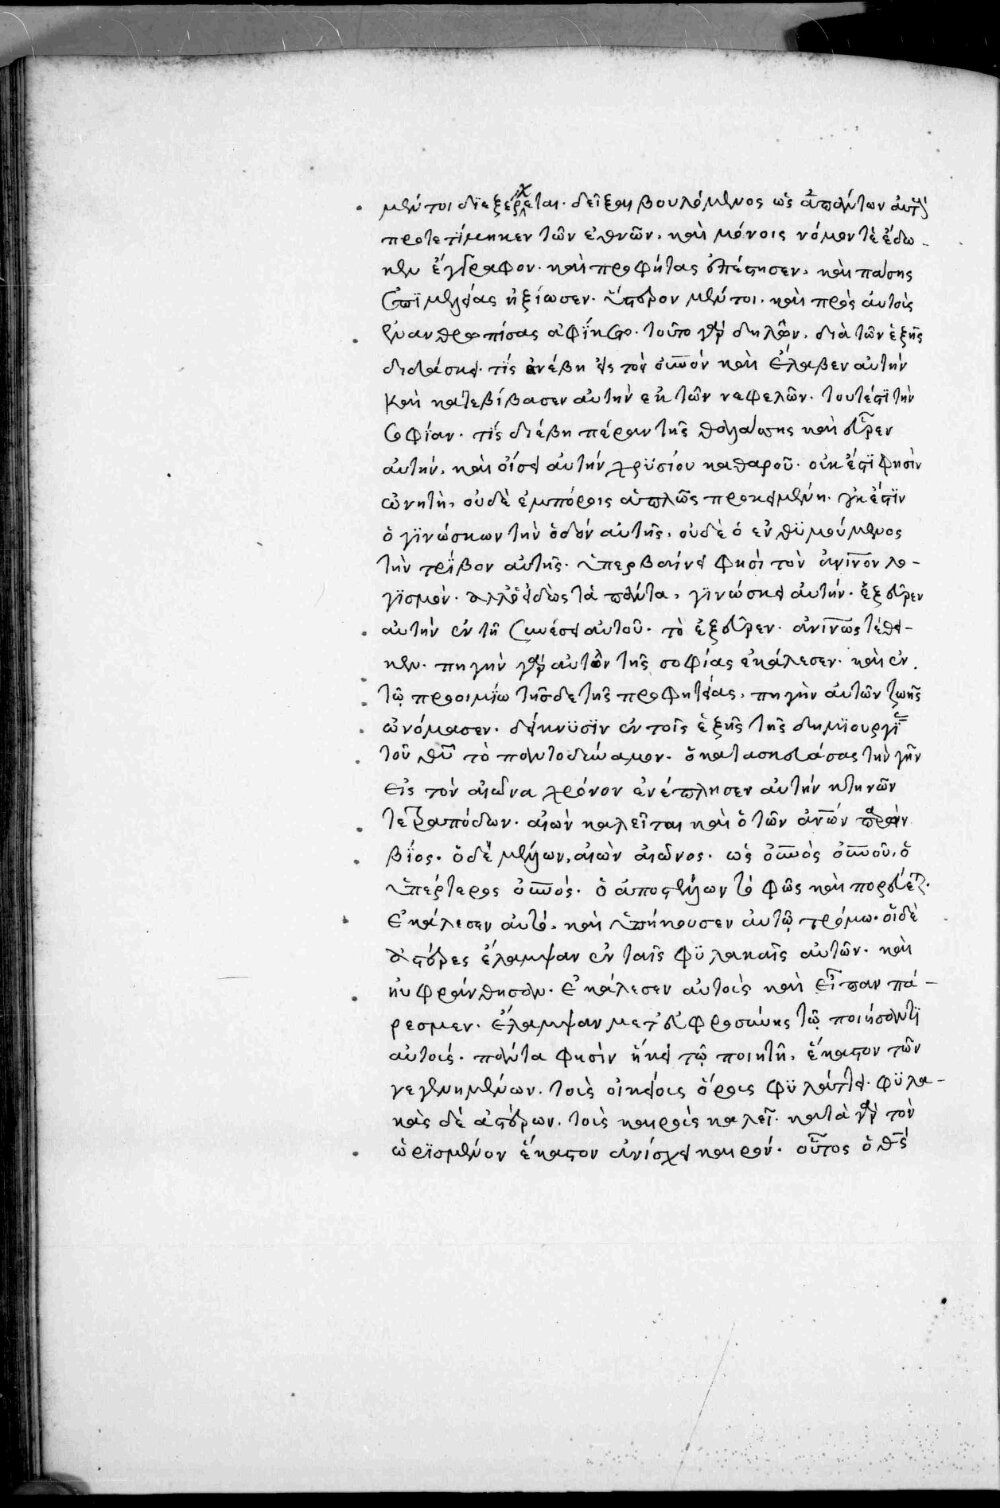 μέντοι διεξέρχεται. δεῖξαι βουλόμενος ὡς ἁπάντων αὐτοὺς
προτετίμηκεν τῶν ἐθνῶν. καὶ μόνοις νόμον τὲ ἔδω-
κεν ἔγγραφον. καὶ προφήτας ἐπέστησεν. καὶ πάσης
ἐπιμελείας ἠξίωσεν. ὕστερον μέντοι. καὶ πρὸς αὐτοὺς
ἐνανθρωπίσας ἀφίκετο. τοῦτο γὰρ δηλῶν. διὰ τῶν ἑξῆς
διδάσκει. τίς ἀνέβη εἰς τὸν οὐνὸν καὶ ἔλαβεν αὐτὴν
καὶ κατεβίβασεν αὐτὴν ἐκ τῶν νεφελῶν. τουτέστι τὴν
σοφίαν. τίς διέβη πέραν τῆς θαλάσσης καὶ εὗρεν
αὐτήν. καὶ οἴσει αὐτὴν χρϋσίου καθαροῦ. οὐκ ἔστι φησὶν
ὠνητή. οὐδὲ ἐμπόροις ἁπλῶς προκειμένη. οὐκ ἔστϊν
ὁ γϊνώσκων τὴν ὁδὸν αὐτῆς. οὐδὲ ὁ ἐνθϋμούμενος
τὴν τρίβον αὐτῆς. ὑπερβαίνει φησὶ τὸν ἀνινον λο-
γϊσμόν. ἀλλ' ὁ εἰδὼς τὰ πάντα, γϊνώσκει αὐτήν. ἐξεῦρεν
αὐτὴν ἐν τῇ συνέσει αὐτοῦ. τὸ ἐξεῦρεν. ἀνίνως τέθει-
κεν. πηγὴν γὰρ αὐτὸν τῆς σοφίας ἐκάλεσεν. καὶ ἐν
τῷ προοιμίω τῆσδε τῆς προφητείας. πηγὴν αὐτὸν ζωῆς
ὠνόμασεν. δείκνϋσϊν ἐν τοῖς ἑξῆς τῆς δημϊουργίας
τοῦ θῦ τὸ παντοδύναμον. ὁ κατασκευάσας τὴν γῆν
εἰς τὸν αἰῶνα χρόνον ἐνέπλησεν αὐτὴν κτηνῶν
τετραπόδων. αἰὼν καλεῖται καὶ ὁ τῶν ἀνων παρὼν
βίος. ὁ δὲ μέλλων, αἰὼν αἰῶνος. ὡς οὐνὸς οὐνοῦ. ὁ
ὑπέρτερος οὐνός. ὁ ἀποστέλλων τὸ φῶς καὶ πορεύεται.
ἐκάλεσεν αὐτό. καὶ ὑπήκουσεν αὐτῷ τρόμω. οἱ δὲ
ἀστέρες ἔλαμψαν ἐν ταῖς φϋλακαῖς αὐτῶν. καὶ
ηὐφράνθησαν. ἐκάλεσεν αὐτοὺς καὶ εἶπαν πά-
ρεσμεν. ἔλαμψαν μετ' εὐφροσύνης τῷ ποιήσαντϊ
αὐτούς. πάντα φησὶν ἥκει τῷ ποιητῇ. ἕκαστον τῶν
γεγενημένων. τοὺς οἰκείους ὅρους φϋλάττει. φϋλα-
κὰς δὲ ἀστέρων. τοὺς καιροὺς καλεῖ. κατὰ γὰρ τὸν
ὡρϊσμένον ἕκαστον ἀνίσχει καιρόν. οὗτος ὁ θς